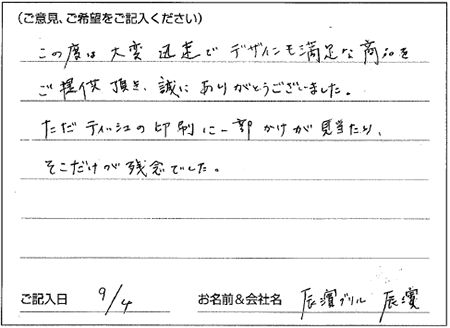 (ご意見、ご希望をご記入ください)
この度は大変迅速でデザインも満足な商品を
ご提供頂き、誠にありがとうございました。
ただティッシュの印刷に一部かけが見当たり、
そこだけが残念でした。
ご記入日 9/4 お名前&会社名 辰濱グリル 辰濱